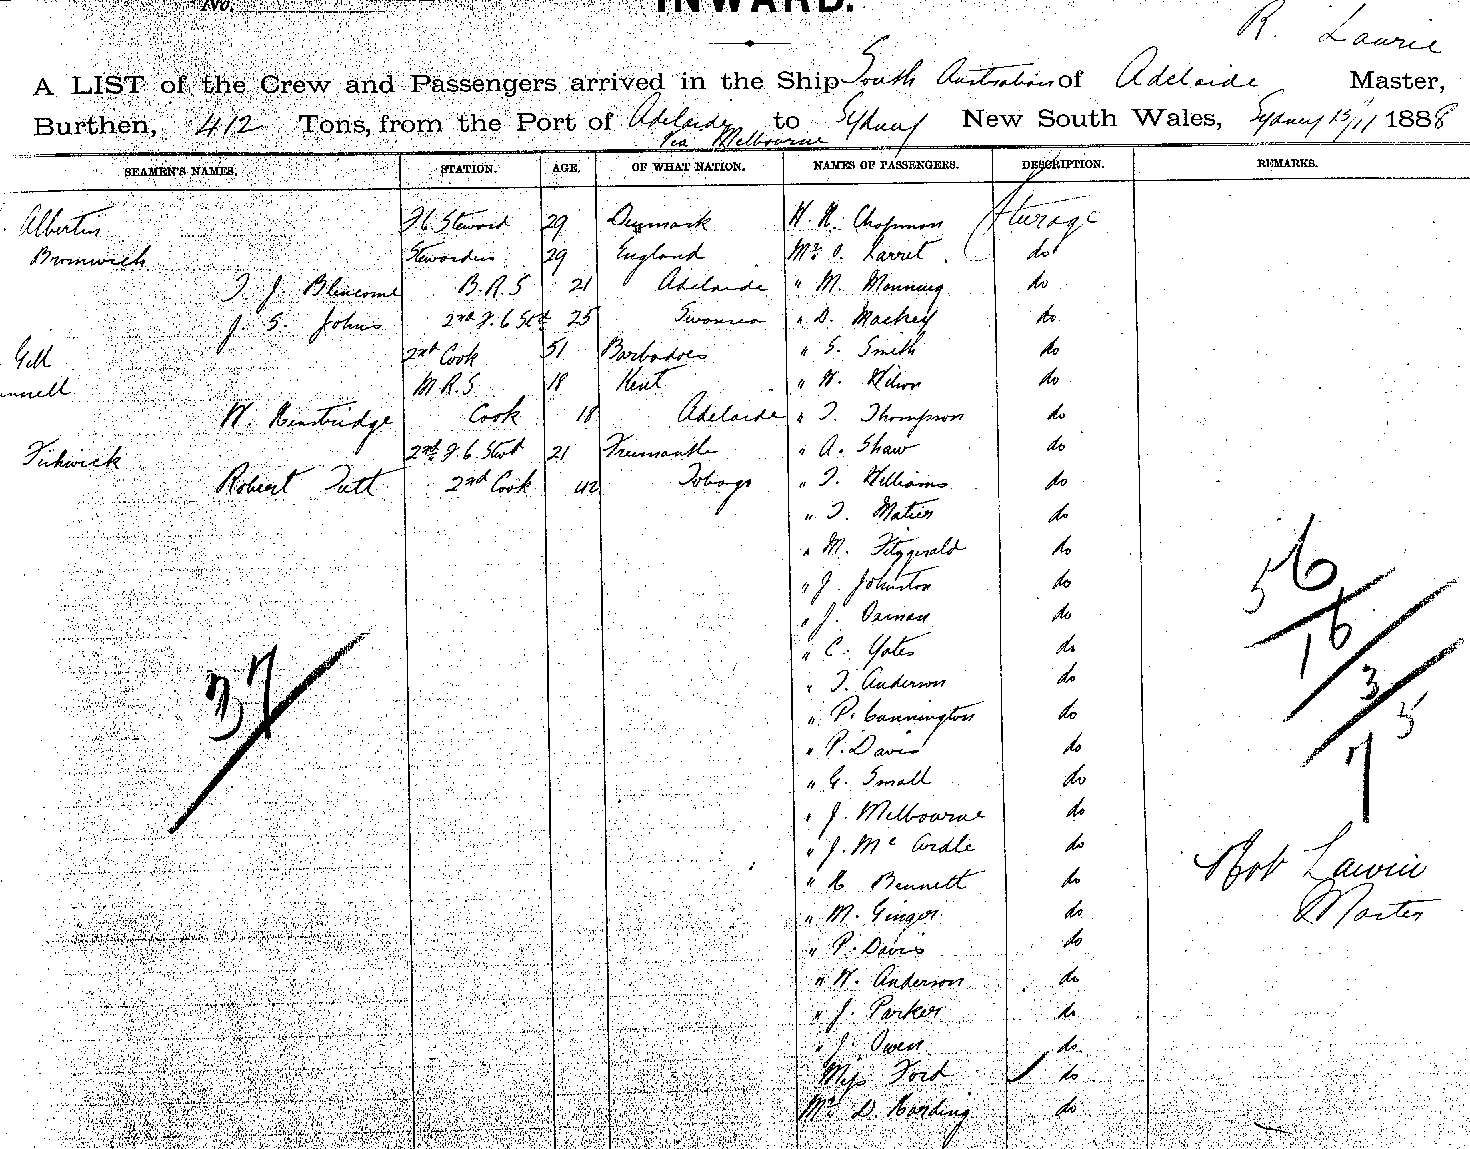 No.
INWARD.
R. Lawrie
A LIST of the Crew and Passengers arrived in the Ship South Australian of Adelaide Master,
Burthen, 412 Tons, from the Port of Adelaide to Sydney New South Wales, Sydney 13/11 1888
via Melbourne
SEAMEN'S NAMES. STATION. AGE. OF WHAT NATION. NAMES OF PASSENGERS. DESCRIPTION. REMARKS.
Albertin F C Steward 29 Denmark W. H. Chapman Sturage
Bromwich Stewardess 29 England Mr J. Larret do
T. J. Blincome B.R.S 21 Adelaide " M. Manning do
J. S. Johns 2nd F. C Std 25 Swansea " D. Mackey do
Gill 2nd Cook 51 Barbadoes " S. Smith do
M.R.S. 18 Kent " W. Wilson do
W. Henstridge Cook 18 Adelaide " T. Thompson do
Fishwick 2nd F. C. Stwt 21 Freemantle " A. Shaw do
Robert Tutt 2nd Cook 42 Tobago " T. Williams do
" T. do
" M. Fitzgerald do
" J. Johnston do
" J. do
" C. Yates do
" T. Anderson do
" P. Cannington do
" P. Davis do
" G. Small do
" J. Melbourne do
" J. Mc Ardle do
" H. Bennett do
" M. Ginger do
" P. Davis do
" W. Anderson do
" J. Parker do
" J. Owen do
Miss Ford do
Mr D. Harding do
37/
56/
16/
3/5
7
Rob Lawrie
Master